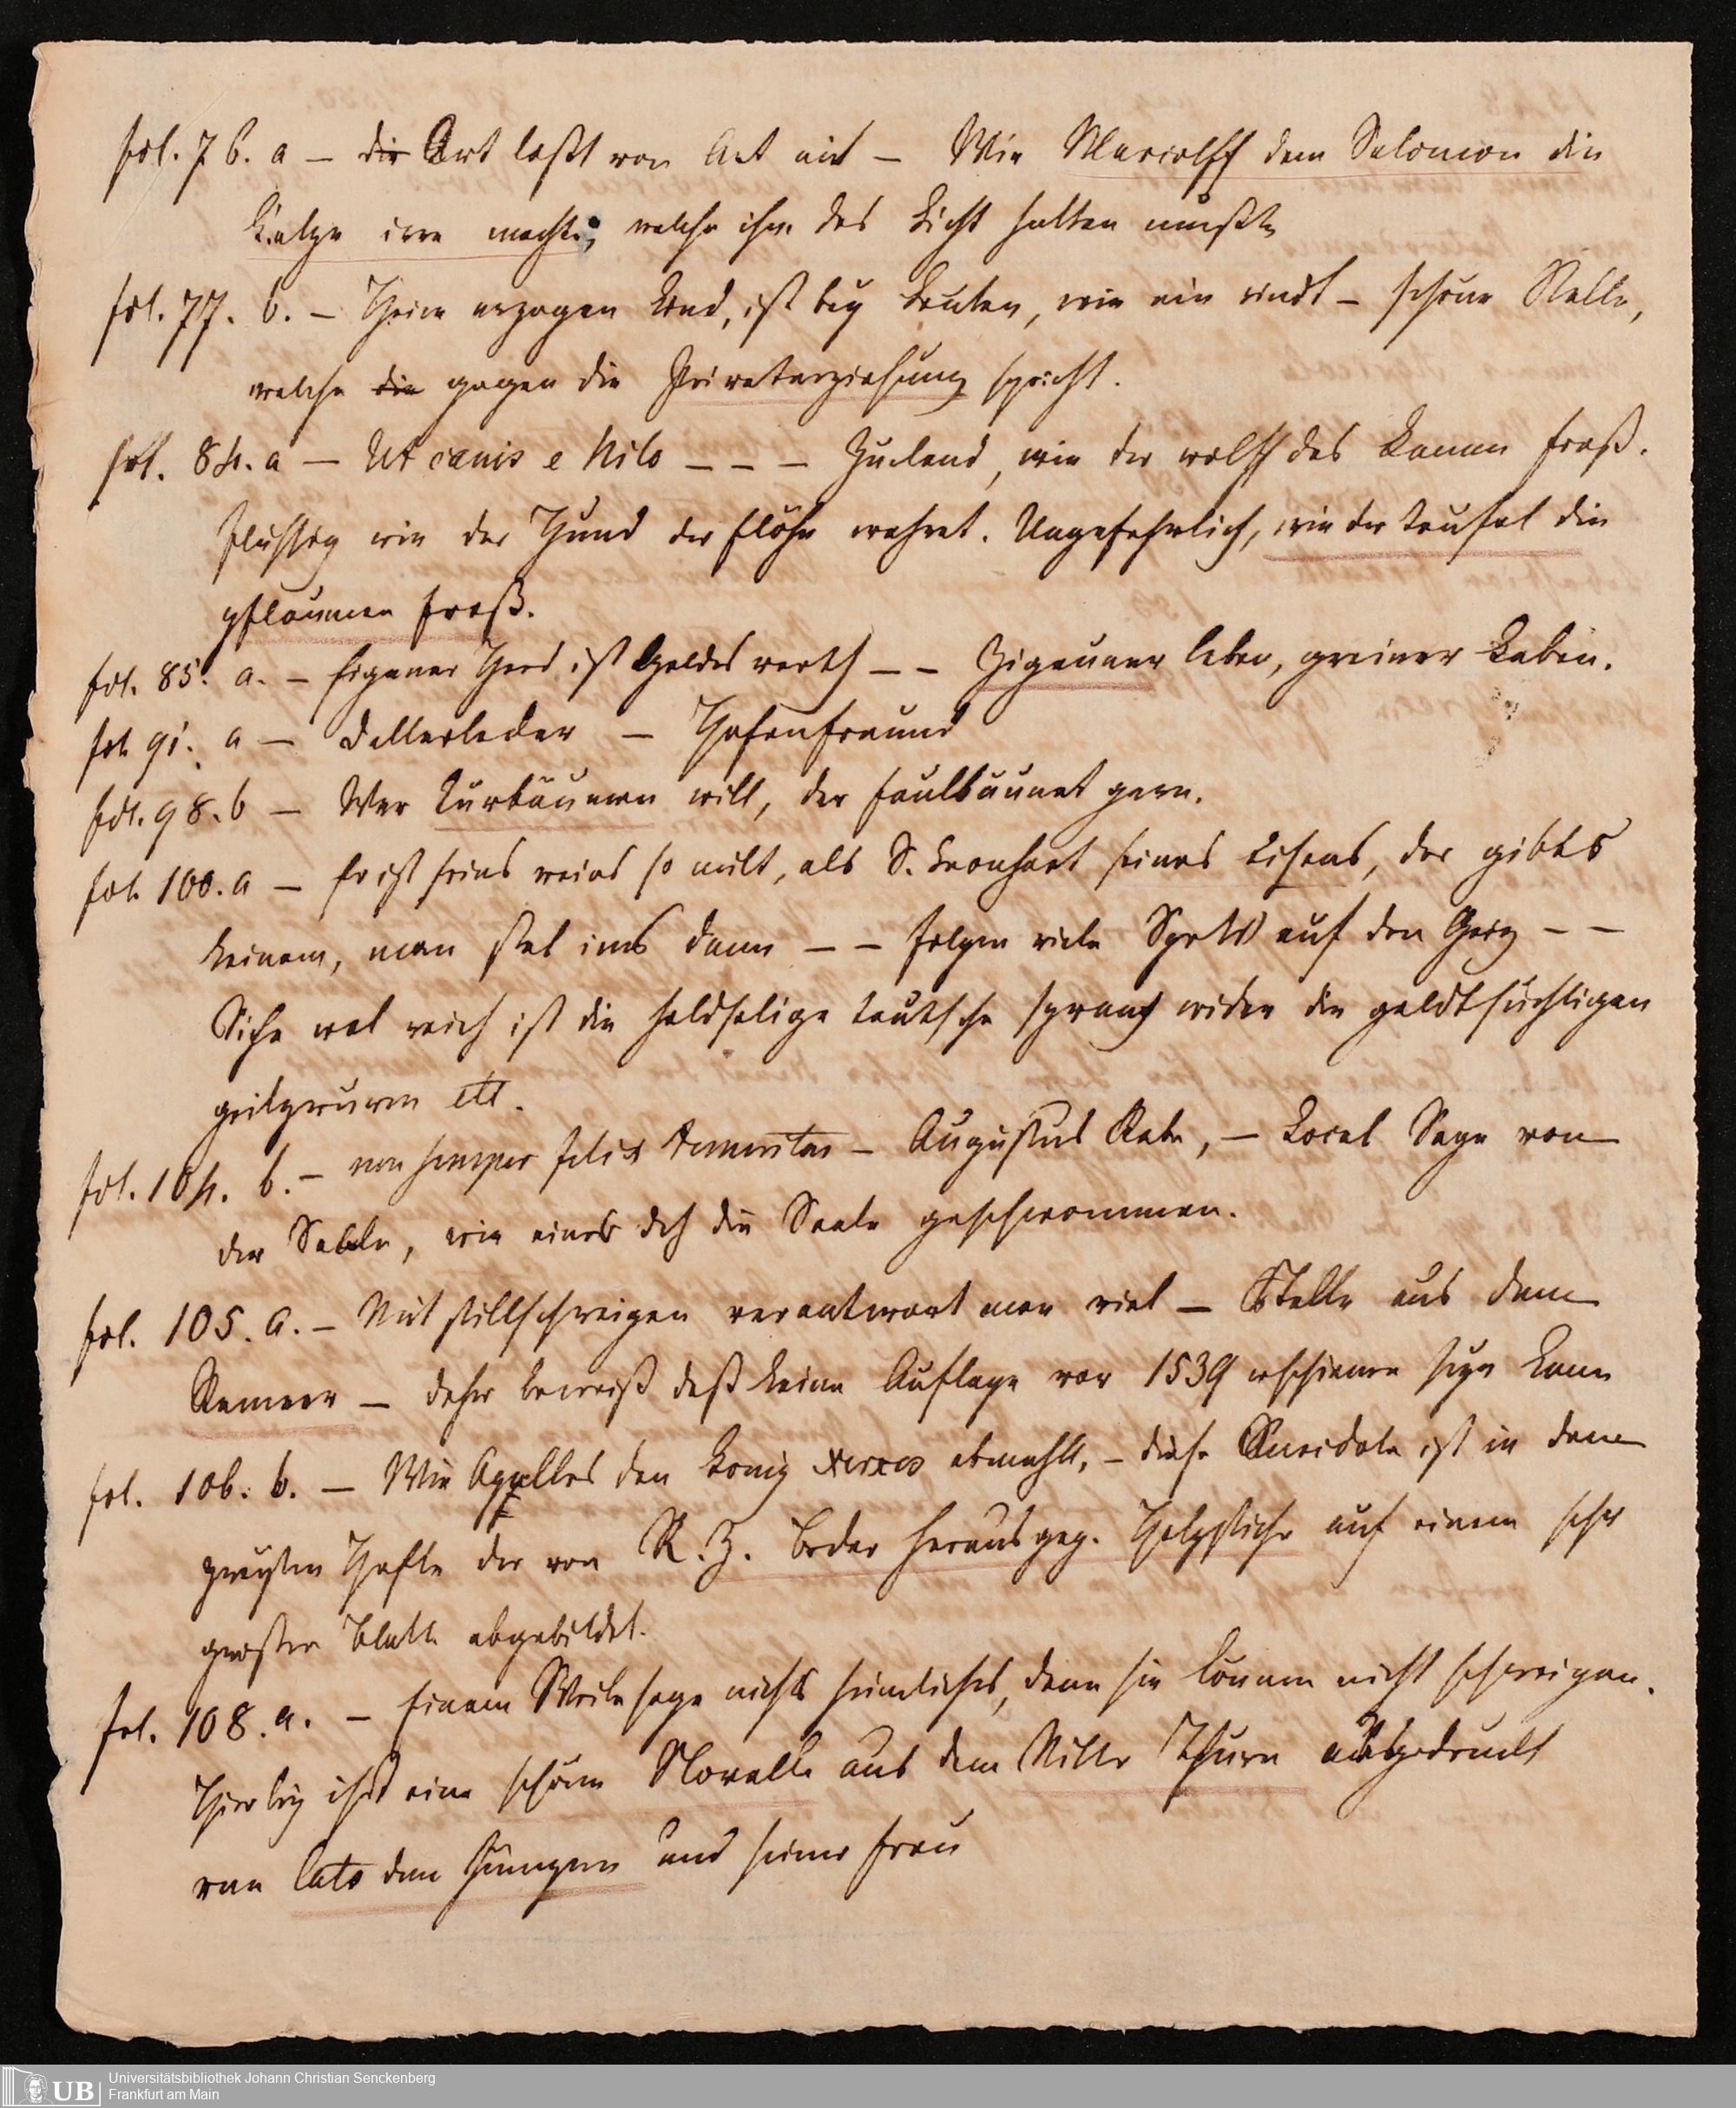 fol. 76. a – die Art laßt von Art nit – Wie Marcolff dem Salomon die
Katze irre machte, welche ihm das Licht halten mußte
fol. 77. b. – Heim erzogen Kind, ist bey Leuten, wie ein rindt – schöne Stelle,
welche die gegen die Privaterziehung spricht.
fol. 84. a – Ut canis e Nilo – – – wie der wolff das Lamm fraß.
wie der Hund der flöhe wehret. Ungefehrlich, wie der teufel die
pflaumen fraß.
fol. 85. a. – Eigener Herd ist Goldes werth – – Zigeuner leben, greiner Leben.
fol. 91. a – Dellerlecker – Hafenfreund
fol. 98. b – Wer Kurbäumen will, der faulbäumet gern.
fol. 100. a – Er ist seins weins so milt, als S. Leonhart seines Eisens, der gibts
keinem, man stel ims dann – – folgen viele auf den Geiz – –
Sihe wol reich ist die holdselige teutsche sprach wider die geldtsüchtigen
etc.
fol. 104. b. – non semper felix temeritas – Augustus Rabe, – Local Sage von
der Saale, wie einer dch die Saale geschwommen.
fol. 105. a. – Mit stillschweigen verantwort man viel – Stelle aus dem
Renner – daher beweiß daß keine Auflage vor 1539 erschienen seyn kann
fol. 106. b. – Wie Apelles den König Xerxes abmahlt, – diese Anecdote ist in dem
Hefte der von R. Z. Becker herausgeg. Holzstiche auf einem sehr
großen Blatte abgebildet.
fol. 108. a. – Einem Weibe sage nichts heimliches, denn sie können nicht schweigen.
Hierbey ist eine schöne Novelle aus dem Ritter Thurn ausgedruckt
von Cato dem Jüngern und seiner Frau
Universitätsbibliothek Johann Christian Senckenberg
Frankfurt am Main
UB